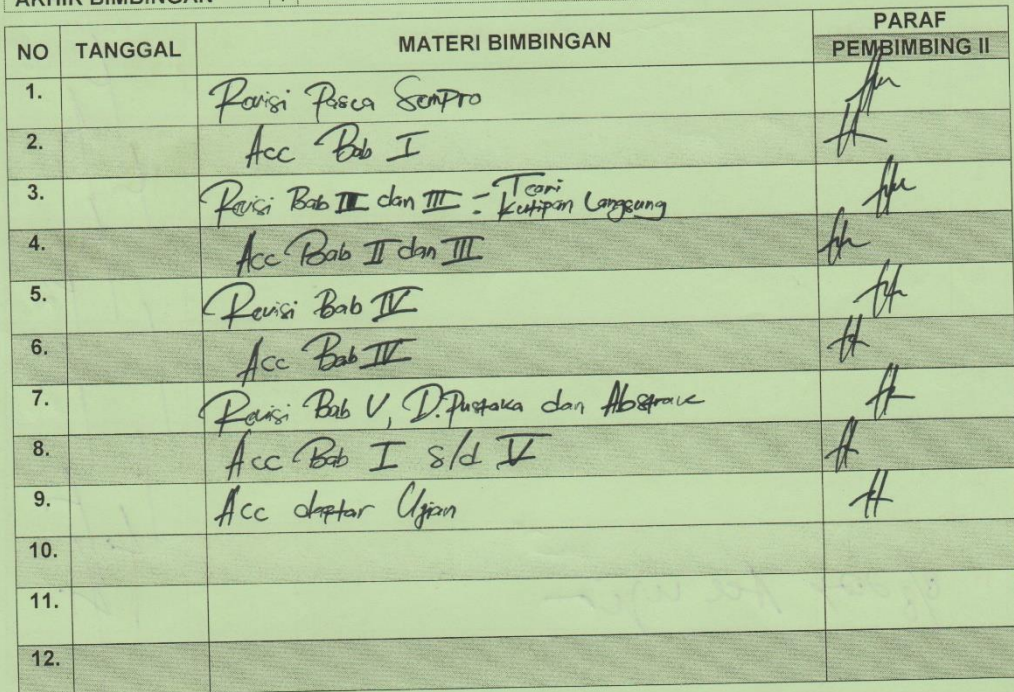 AKHIR BIMBINGAN :
NO TANGGAL MATERI BIMBINGAN PARAF
PEMBIMBING II
1. Revisi Pasca Sempro
2. Acc Bab I
3. Revisi Bab II dan III = Teori
Kutipan Langsung
4. Acc Bab II dan III
5. Revisi Bab IV
6. Acc Bab IV
7. Revisi Bab V, D.Pustaka dan Abstrak
8. Acc Bab I s/d V
9. Acc daftar Ujian
10.
11.
12.